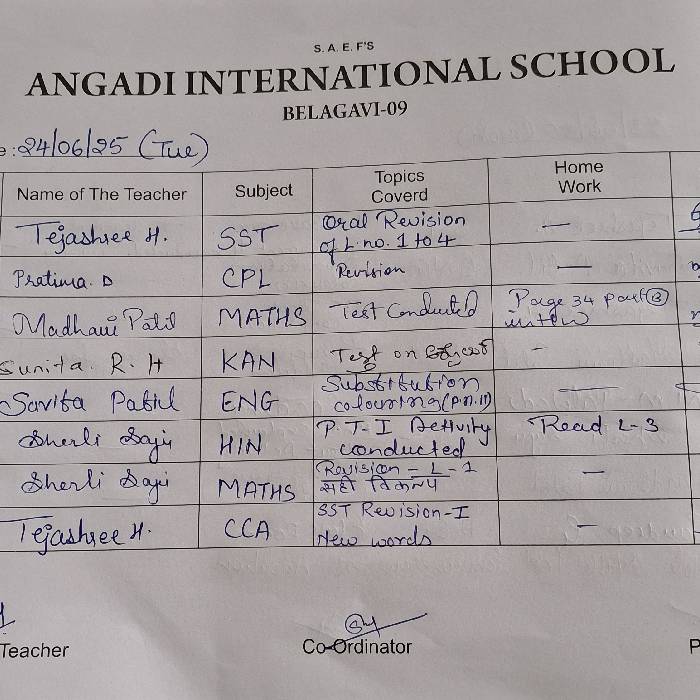 S. A. E. F'S
ANGADI INTERNATIONAL SCHOOL
BELAGAVI-09
e : 24/06/25 (Tue)
Name of The Teacher Subject Topics Coverd Home Work
Tejashree H. SST Oral Revision — 
of L. no. 1 to 4
Pratima. D CPL Revision —
Madhavi Patil MATHS Test Conducted Page 34 part B
Sunita. R. H KAN Test on -
Savita Patil ENG Substitution —
colouring (P.n.11)
Sherli Saju HIN P. T- I Activity Read L-3
conducted
Sherli Saju MATHS Revision - L - 1 —
सही विकल्प
Tejashree H. CCA SST Revision-I -
New words
Teacher Co-Ordinator P